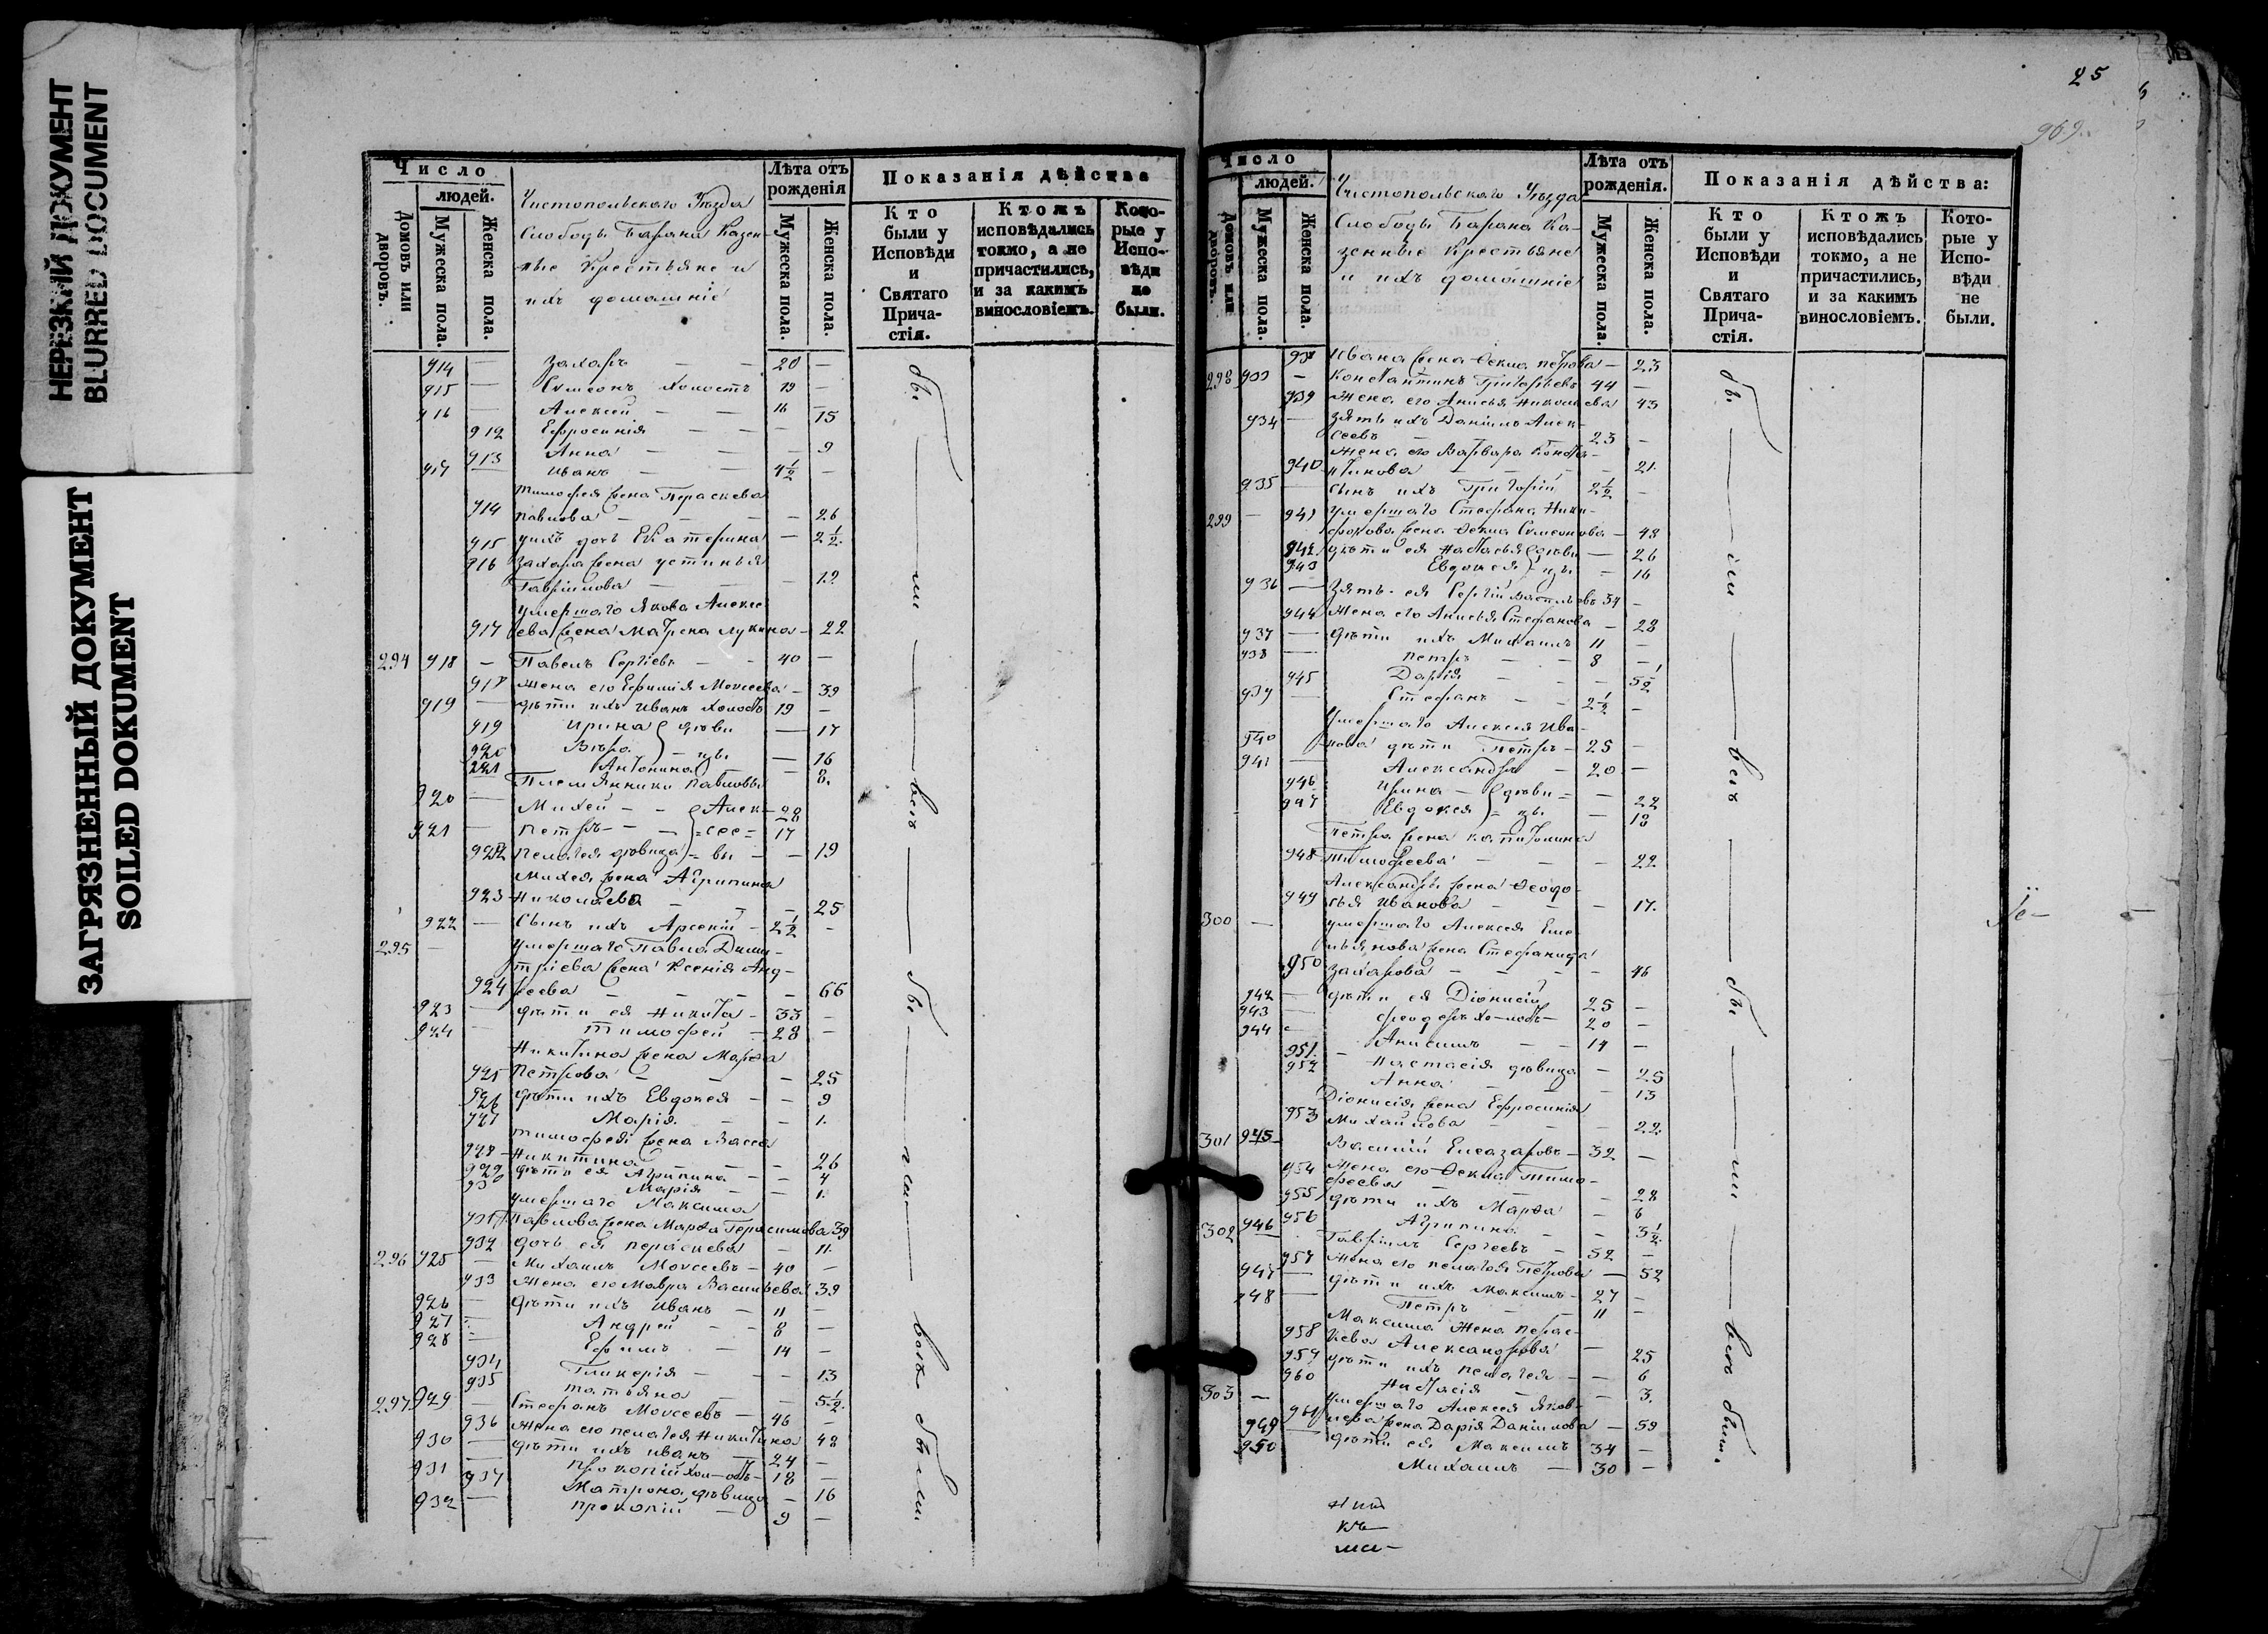 НЕРЕЗКИЙ ДОКУМЕНТ
BLURRED DOCUMENT
ЗАГРЯЗНЕННЫЙ ДОКУМЕНТ
SOILED DOKUMENT
Число
людей.
Домовъ или дворовъ.
Мужеска пола.
Женска пола.
Чистопольскаго Уѣзда
Слободы Барана Казен-
ные Крестьяне и
ихъ домашніе
Лѣта отъ рожденія
Мужеска пола.
Женаска пола.
Показанія дѣйства
Кто были у Исповѣди и Святаго Прича-стія.
Ктожъ исповѣдались токмо, а не причастились, и за какимъ винословіемъ.
Кото-рые у Испо-вѣди не были.
914 — Захаръ — — 20 —
915 — Симеонъ холостъ 19 —
916 — Алексей — — 16 —
912 Ефросинія — — — 15
913 Анна — — — 9
917 Иванъ — — 4½ —
Тимофея жена Параскева
914 Павлова — — — 26
915 ихъ дочь Екатерина — 2½
916 Захара жена Устинья
Гавріилова — — — 19
Умершаго Якова Алексе
917 ева жена Матрена Лукина — 22
294 918 — Павелъ Сергіевъ — — 40 —
918 Жена его Ефимія Моисеева — 39
919 — дѣти ихъ Иванъ холостъ 19 —
919 Ирина дѣви — 17
920 Вѣра — цы — 16
921 Антонина — 8.
Племянники Павловы
920 — Михей — — Алек- 28
921 — Петръ — — сее= 17
922 Пелагея дѣвица = вы — — 19
Михея жена Агрипина
923 Николаева — — — 25
922 — Сынъ ихъ Арсеній — 2½ —
295 — Умершаго Павла Дими-
тріева жена Ксенія Анд-
924 реева — — — — 66
923 — дѣти ея Никита — 33 —
924 — Тимофей — 28 —
Никитина жена Марфа
925 Петрова — — — 25
926 дѣти ихъ Евдокея — — 9
927 Марія — — — 1.
Тимофея жена Васса
928 Никитина — — — 26
929 дѣти ея Агрипина — — 4
930 Марія — — 1.
Умершаго Максима
931 Павлова жена Марфа Герасимова 39
932 дочь ея Параскева — 11.
296 925 — Михаилъ Моисеевъ — 40 —
933 Жена его Мавра Васильева 39
926 — дѣти ихъ Иванъ — 11 —
927 — Андрей — — 8 —
928 — Ефимъ — 14 —
934 Гликерія — — — 13
935 Татьяна — — 5½
297 929 — Стефанъ Моисеевъ — 46 —
936 Жена его Пелагея Никитина 48
930 — дѣти ихъ Иванъ — 24 —
931 — Прокопій хол-остъ — 18 —
937 Матрона дѣвица — 16
932 — Прокопій — 9 —
бы — ли — всѣ — бы — ли — всѣ были
25
969
Число
людей.
Домовъ или дворовъ.
Мужеска пола.
Женска пола.
Чистопольскаго Уѣзда
Слободы Барана Ка-
зенные Крестьяне
и ихъ домашніе
Лѣта отъ рожденія.
Мужеска пола.
Женска пола.
Показанія дѣйства:
Кто были у Исповѣди и Святаго Прича-стія.
Ктожъ исповѣдались токмо, а не причастились, и за какимъ винословіемъ.
Кото-рые у Испо-вѣди не были.
938 Ивана жена Ѳекла Петрова — 23
298 933 — Константинъ Григорьевъ 44 —
939 Жена его Анисья Николаева 43
934 — Зять ихъ Даніилъ Алек-
сеевъ — 23 —
Жена его Варвара Конста-
940 нтинова — — — 21.
935 — Сынъ ихъ Григорій 2½ —
299 — 941 Умершаго Стефана Ники-
форова жена Ѳекла Симеонова — 48
942 дѣти ея Настасья дѣви — 26
943 Евдокея цы — 16
936 — Зять ея Сергій Васильевъ 34 —
944 Жена его Анисья Стефанова — 28
937 — дѣти ихъ Михаилъ 11 —
938 — Петръ — — 8 —
945 Дарія — — — 5½
939 Стефанъ — — 2½ —
Умершаго Алексея Ива-
940 нова дѣти Петръ — 25 —
941 — Александръ — 20 —
946 Ирина — дѣви= — 22
947 Евдокея = цы — 18
Петра жена Капитолина
948 Тимофеева — — — 22
Александра жена Ѳеодо-
949 сья Иванова — — — 17.
300 — Умершаго Алексея Еме
льянова жена Стефанида
950 Захарова — — — — 46
942 — дѣти ея Діонисій 25 —
943 — Феодоръ хо-лостъ — 20 —
944 — Анисимъ — — 14 —
951. — Настасія дѣвица — 25
952 Анна — — — 13
Діонисія жена Ефросинія
953 Михайлова — — — 22.
301 945 — Василій Елеазаровъ — 32 —
954 Жена его Ѳекла Тимо-
феева — — — 28
955 дѣти ихъ Марфа — 6
956 Агрипина — — 3½
302 946 Гавріилъ Сергеевъ — 52 —
957 Жена его Пелагея Петрова — 52
947 — дѣти ихъ Максимъ — 27 —
948 — Петръ — — 11 —
Максима Жена Парас-
958 кева Александрова — 25
959 дѣти ихъ Пелагея — — 6
960 Настасія — — 3.
303 — Умершаго Алексея Яков-
961 лева жена Дарія Даніилова — 59
949 — дѣти ея Максимъ 34 —
950 Михаилъ — 30 —
бы — ли — всѣ — бы — ли — всѣ были.